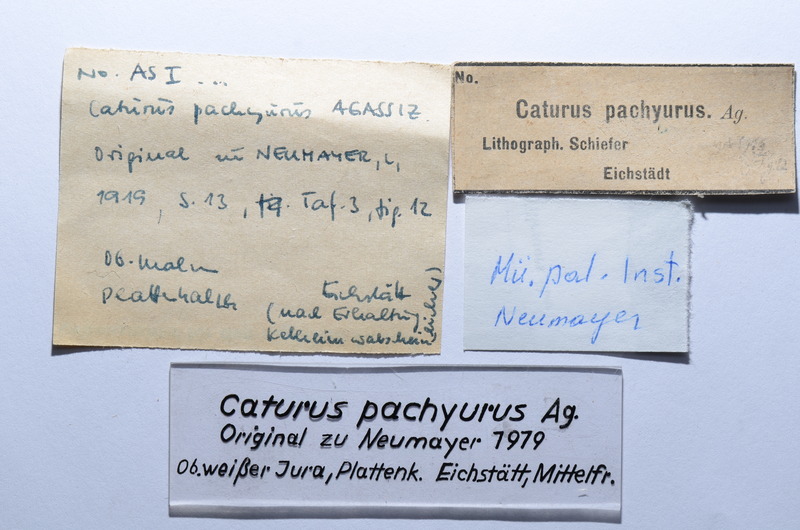 No. AS I ...
Caturus pachyurus AGASSIZ.
Original zu NEUMAYER, L,
1919, S. 13, Taf. 3, fig. 12
Ob. Malm
Plattenkalke
Eichstätt
(nach Erhaltung
Kelheim wahrscheinlicher)
No.
Caturus pachyurus. Ag.
Lithograph. Schiefer
Eichstädt
Mü. pal. Inst.
Neumayer
Caturus pachyurus Ag.
Original zu Neumayer 1979
Ob. weißer Jura, Plattenk. Eichstätt, Mittelfr.